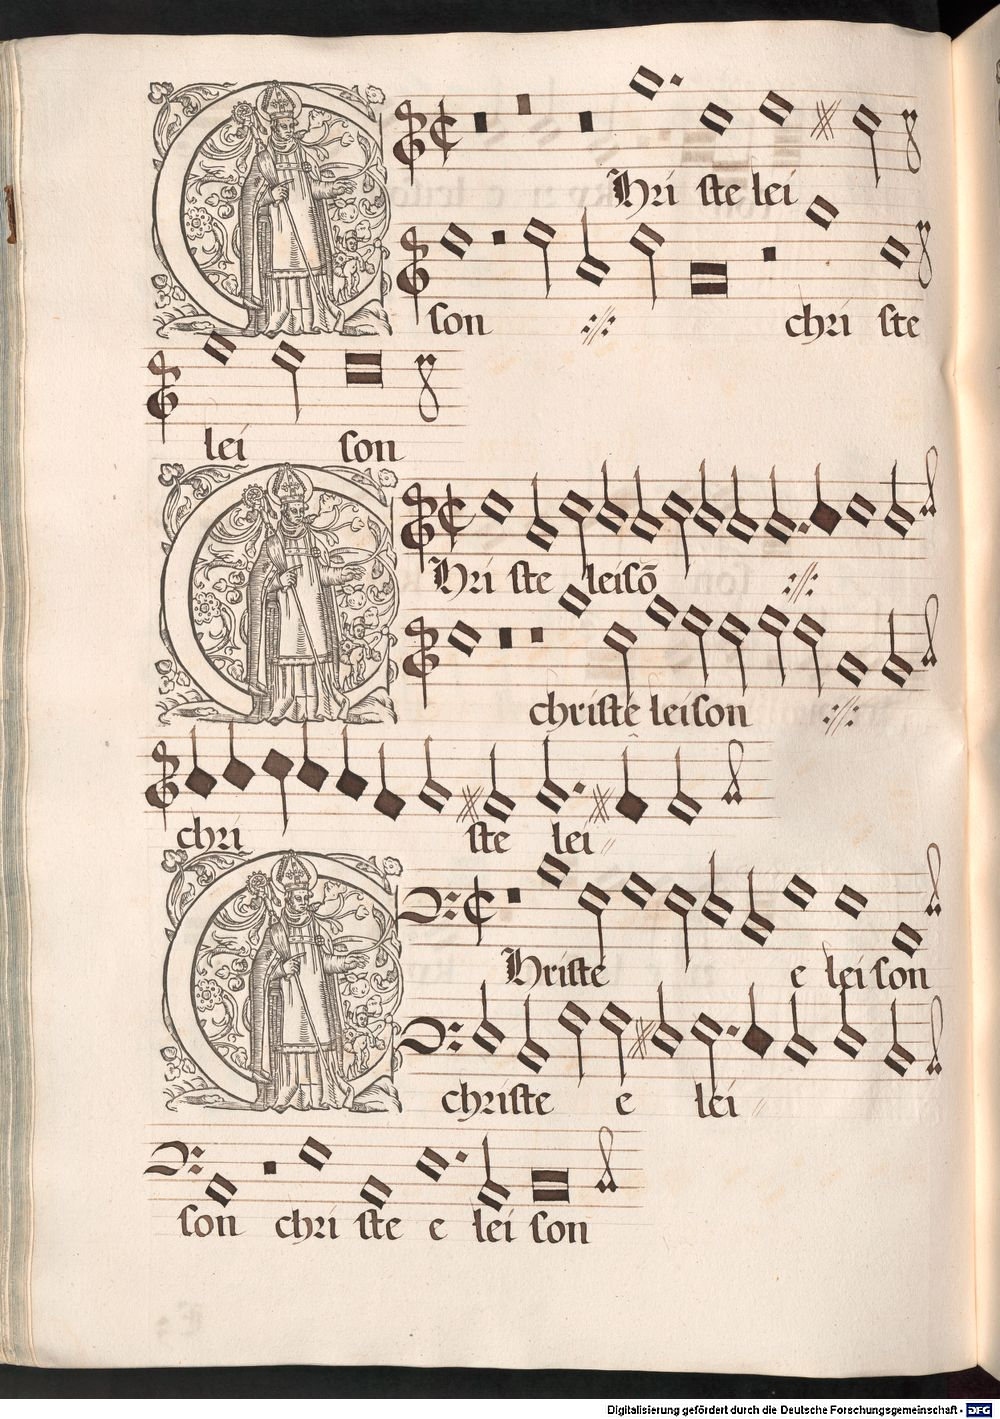 CHri ste lei
son ://: chri ste
lei son
CHri ste leisō ://:
christe leison ://:
chri ste lei
CHriste e leison
christe e lei
son chri ste e lei son
Digitalisierung gefördert durch die Deutsche Forschungsgemeinschaft - DFG